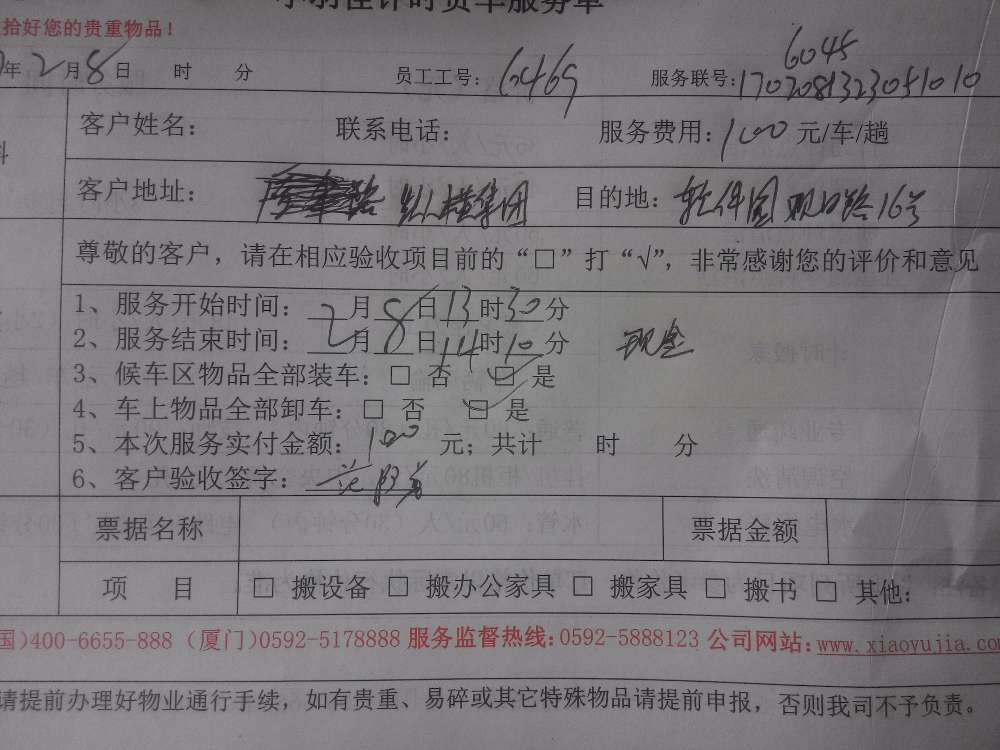 时货车服务单
拾好您的贵重物品!
年2月8日 时 分 员工工号: 6469 服务联号: 1702081323051010
6045
客户姓名: 联系电话: 服务费用: 100 元/车/趟
客户地址: 集团 目的地: 软件园观日路16号
尊敬的客户,请在相应验收项目前的“□”打“√”,非常感谢您的评价和意见
1、服务开始时间: 2月8日13时30分
2、服务结束时间: 2月8日14时10分 现金
3、候车区物品全部装车: □ 否 □ 是
4、车上物品全部卸车: □ 否 □ 是
5、本次服务实付金额: 100 元; 共计 时 分
6、客户验收签字:
票据名称 票据金额
项 目 □ 搬设备 □ 搬办公家具 □ 搬家具 □ 搬书 □ 其他:
国)400-6655-888 (厦门)0592-5178888 服务监督热线:0592-5888123 公司网站: www.xiaoyujia.com
请提前办理好物业通行手续,如有贵重、易碎或其它特殊物品请提前申报,否则我司不予负责。